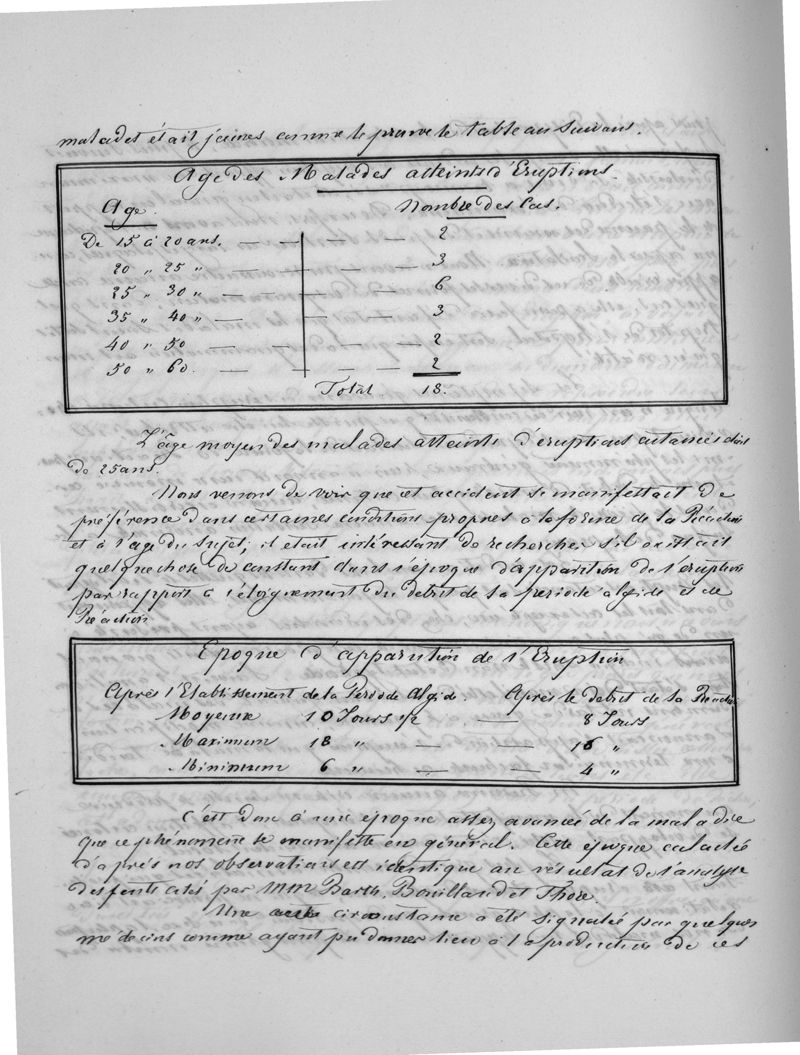 malades était jeunes comme le prouve le tableau suivant.
Age des Malades atteints d'Eruptions.
Age. Nombre des Cas.
De 15 à 20 ans. — — — — 2
20 „ 25 „ — — — — 3
25 „ 30 „ — — — 6
35 „ 40 „ — — — 3
40 „ 50 — — — — 2
50 „ 60. — — — — 2
Total. 18.
L'âge moyen des malades atteints d'éruptions cutanées était
de 25 ans.
Nous venons de voir que cet accident se manifestait de
préférence dans certaines conditions propres à la forme de la Réaction
et à l'age du sujet; il était intéressant de rechercher s'il existait
quelque chose de constant dans l'époque d'apparition de l'éruption
par rapport à l'éloignement du debut de la periode algide et de
Réaction
Epoque d'apparition de l'Eruption
Après l'Etablissement de la Période Algide. Après le debut de la Réaction
Moyenne 10 Jours 1/2 — 8 Jours
Maximum 18 „ — — 16 „
Minimum 6 „ — — 4 „
c'est donc à une époque assez avancée de la maladie
que ce phénomène se manifeste en général. Cette époque calculée
d'après nos observations est identique au résultat de l'analyse
des faits cités par MM Barth, Bouillaud et Thore.
Une autre circonstance a été signalée par quelques
médecins comme ayant pu donner lieu à la production de ces